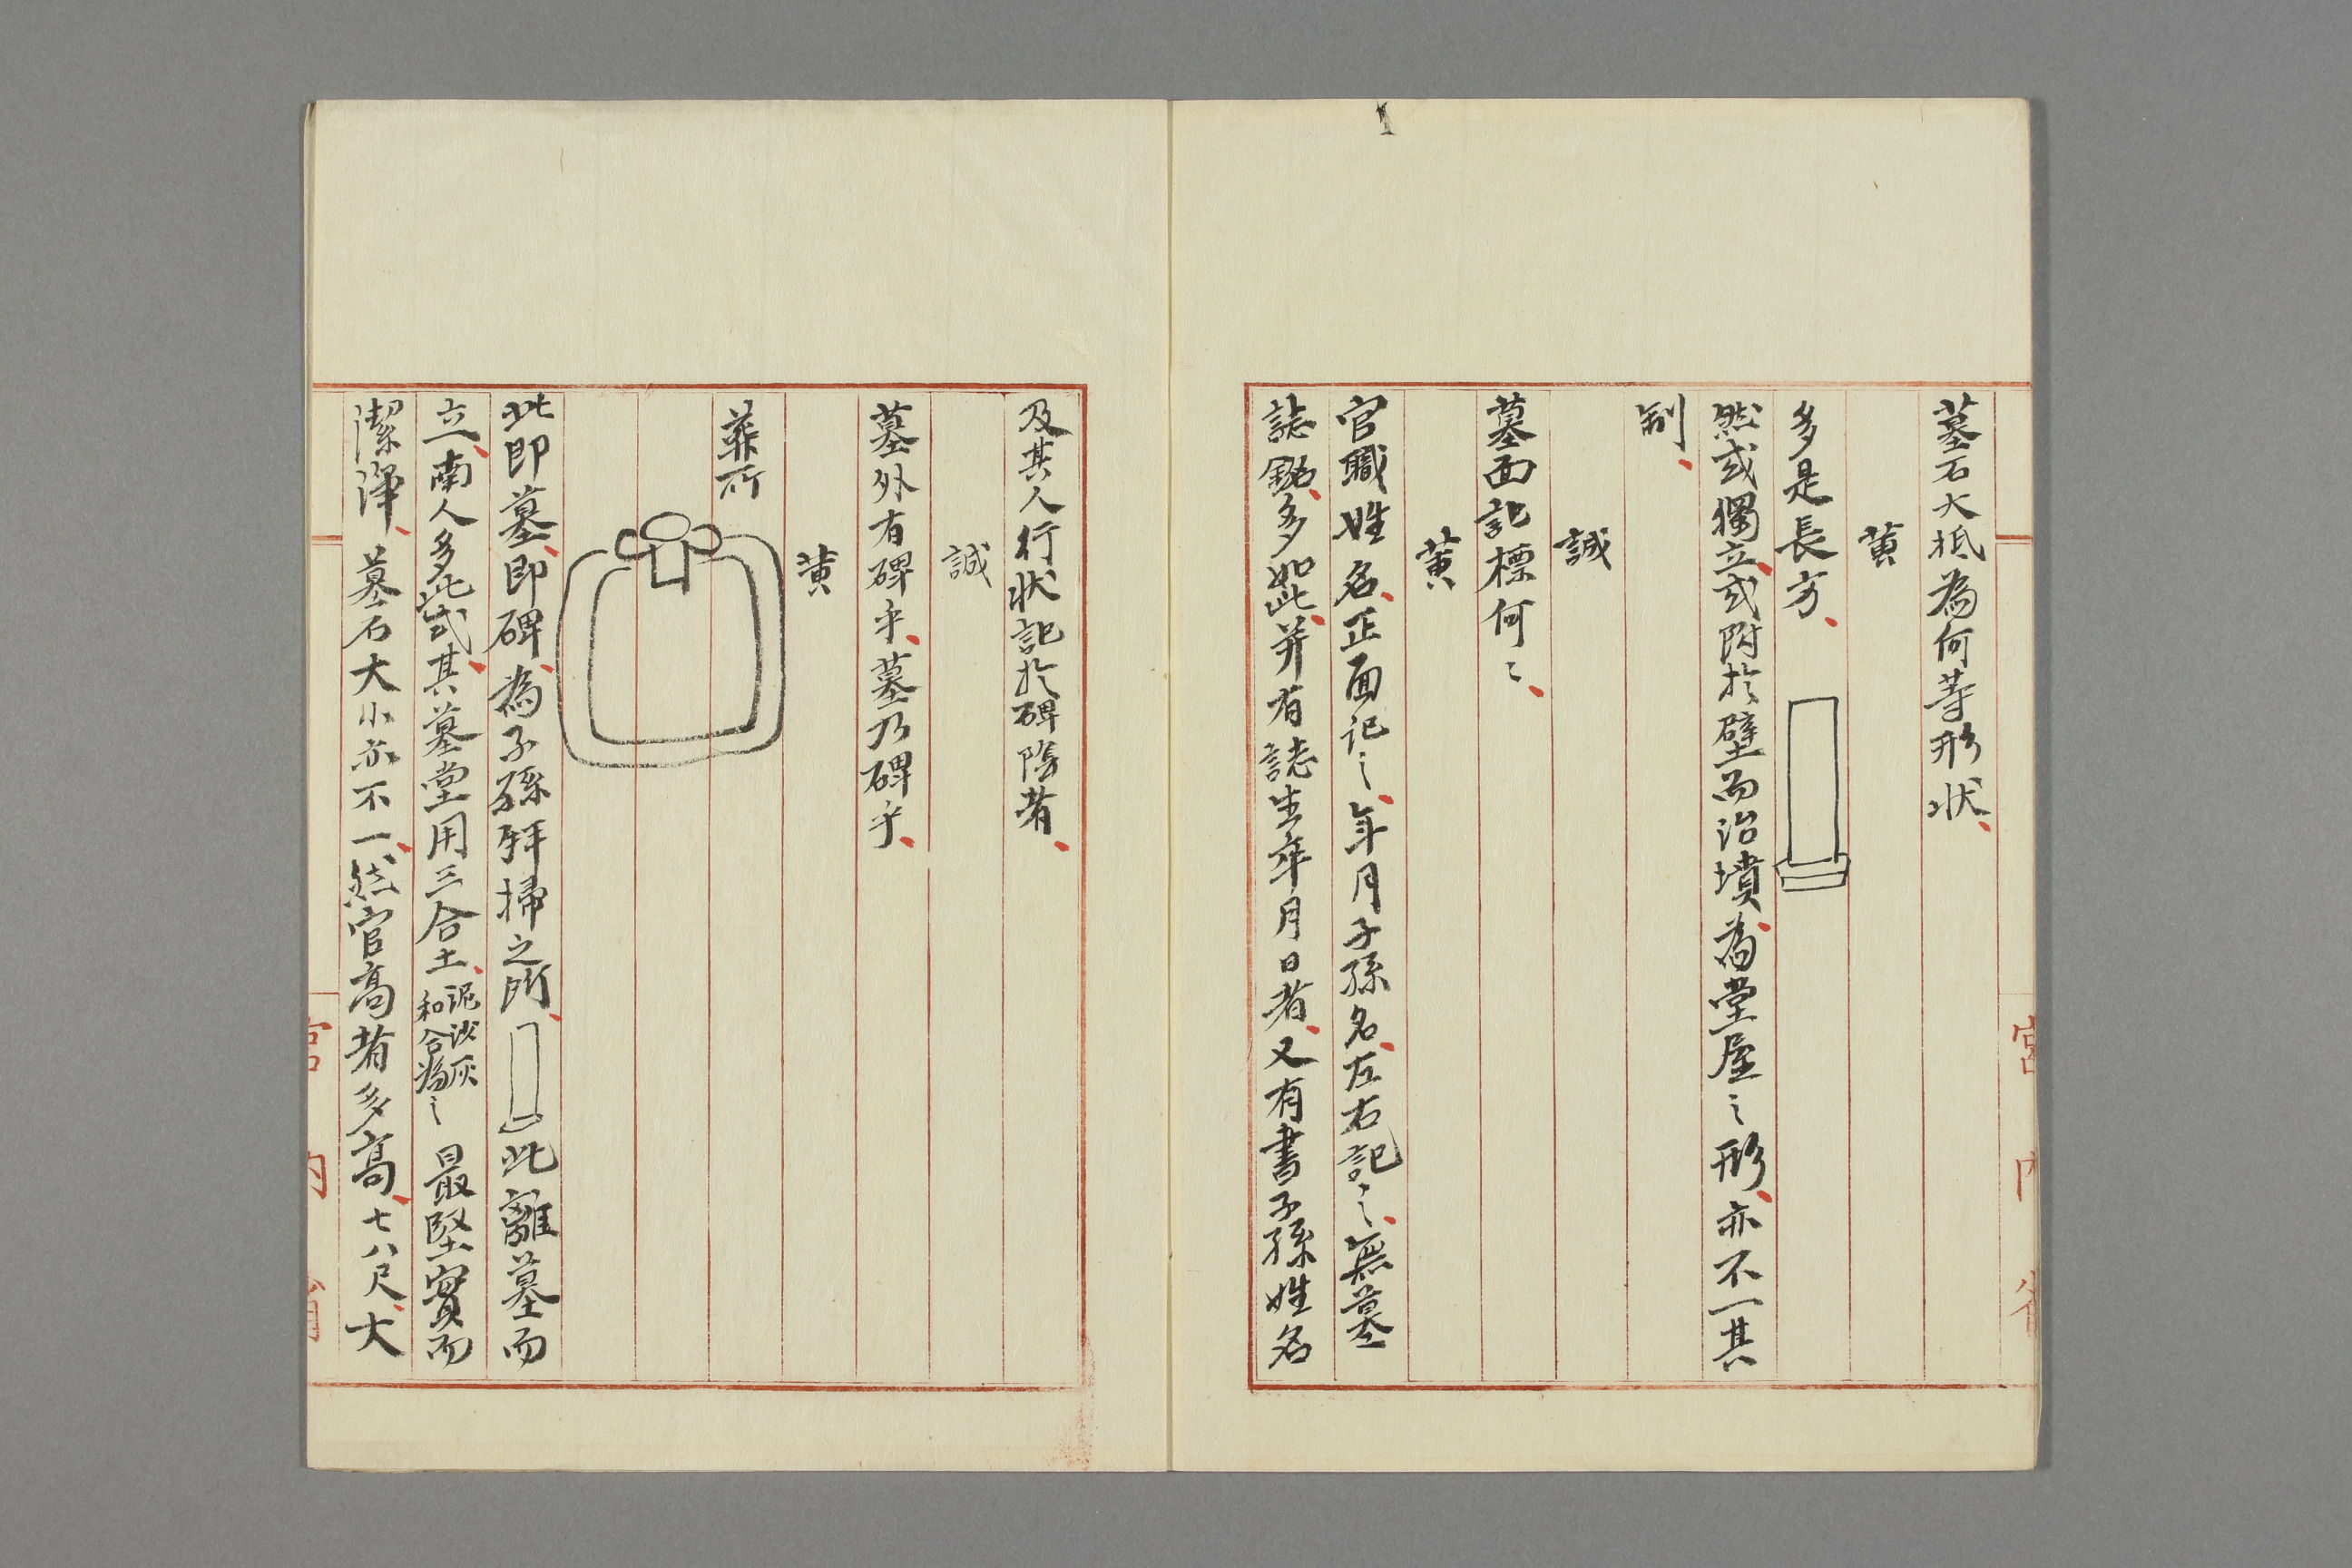 墓石大抵為何等形状、
黄
多是長方、
然或獨立、或附於壁而治墳、為堂屋之形、亦不一其
制、
誠
墓面記標何々、
黄
官職姓名、正面記之、年月子孫名、左右記之、無墓
誌銘、多如此、并有誌生卒年月日者、又有書子孫姓名
及其人行状記於碑陰者、
誠
墓外有碑乎、墓乃碑乎、
黄
葬所
此即墓、即碑、為子孫拜掃之所、此離墓而
立、南人多此式、其墓堂用三合土、泥沙灰
和合為之
最堅實而
潔淨、墓石大小亦不一、然官高者多高、七八尺、大
宮內省
宮內省